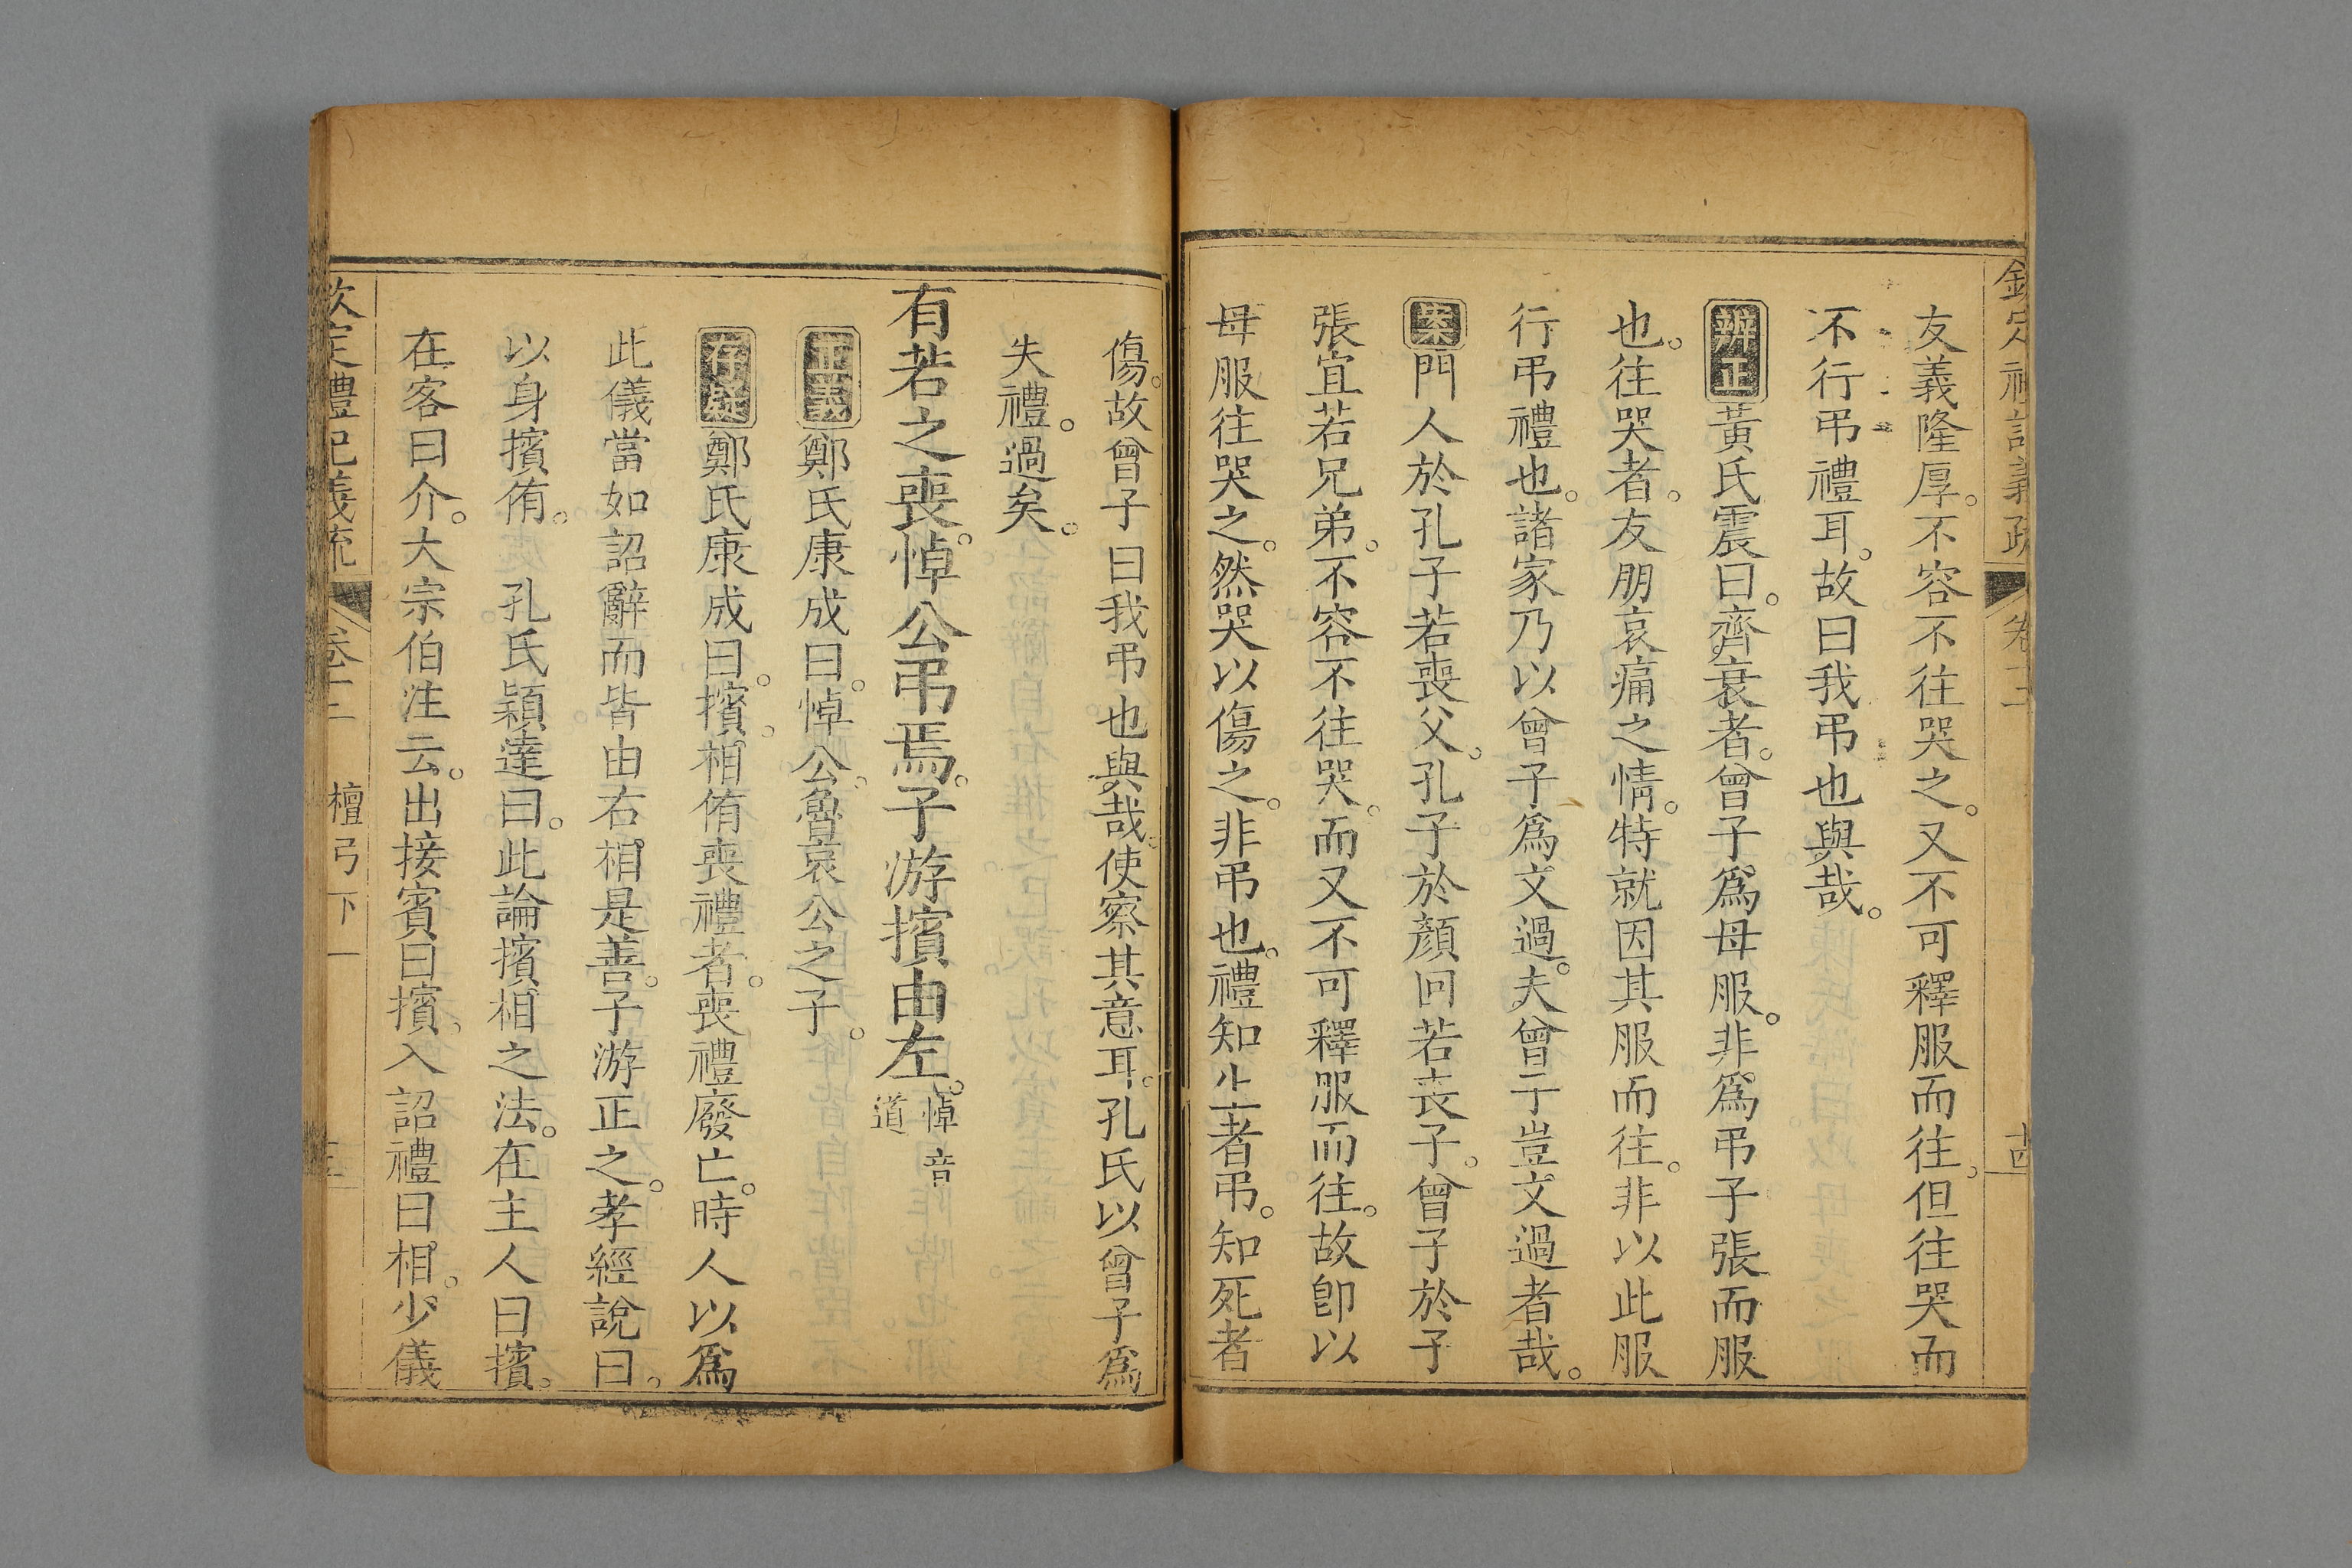 欽定禮記義疏 卷十二 十四
友義隆厚。不容不往哭之。又不可釋服而往。但往哭而
不行弔禮耳。故曰我弔也與哉。
辨正 黃氏震曰。齊衰者。曾子為母服。非為弔子張而服
也。往哭者。友朋哀痛之情。特就因其服而往。非以此服
行弔禮也。諸家乃以曾子為文過。夫曾子豈文過者哉。
案 門人於孔子若喪父。孔子於顏回若喪子。曾子於子
張宜若兄弟。不容不往哭。而又不可釋服而往。故卽以
母服往哭之。然哭以傷之。非弔也。禮知生者弔。知死者
傷。故曾子曰我弔也與哉。使察其意耳。孔氏以曾子為
失禮。過矣。
有若之喪。悼公弔焉。子游擯由左。悼音
道
正義 鄭氏康成曰。悼公。魯哀公之子。
存疑 鄭氏康成曰。擯。相侑喪禮者。喪禮廢亡。時人以為
此儀當如詔辭而皆由右相是善。子游正之。孝經說曰。
以身擯侑。 孔氏穎達曰。此論擯相之法。在主人曰擯。
在客曰介。大宗伯注云。出接賓曰擯。入詔禮曰相。少儀
欽定禮記義疏 卷十二 檀弓下一